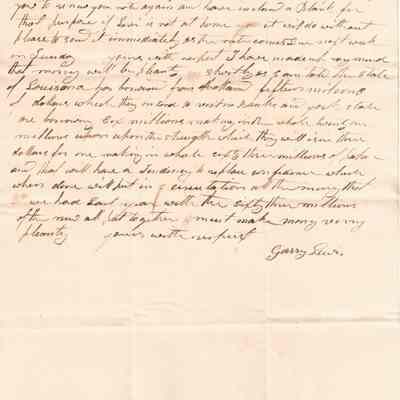 you to renew your note again and have inclosed a Blank for
that purpose if Levi is not at home you it will do without
please to send it immediately as the note comes due next week
on Sunday yours with respect I have made up my mind
that money will be plenty shortly as I am told the State
of Louisiana has borrowed four
dollars which they in and to vest in Banks and york state
are borrowing Six millions making in the whole twenty one
millions upon the strength which they will issue three
dollars for one making in whole sixty three millions of dolars
and that will have a tendency to replace confidence which
when done will put in circulation all the money that
we had last year with the sixty three millions
of the new all put together must make money very
plenty yours with respect
Garry Lewis